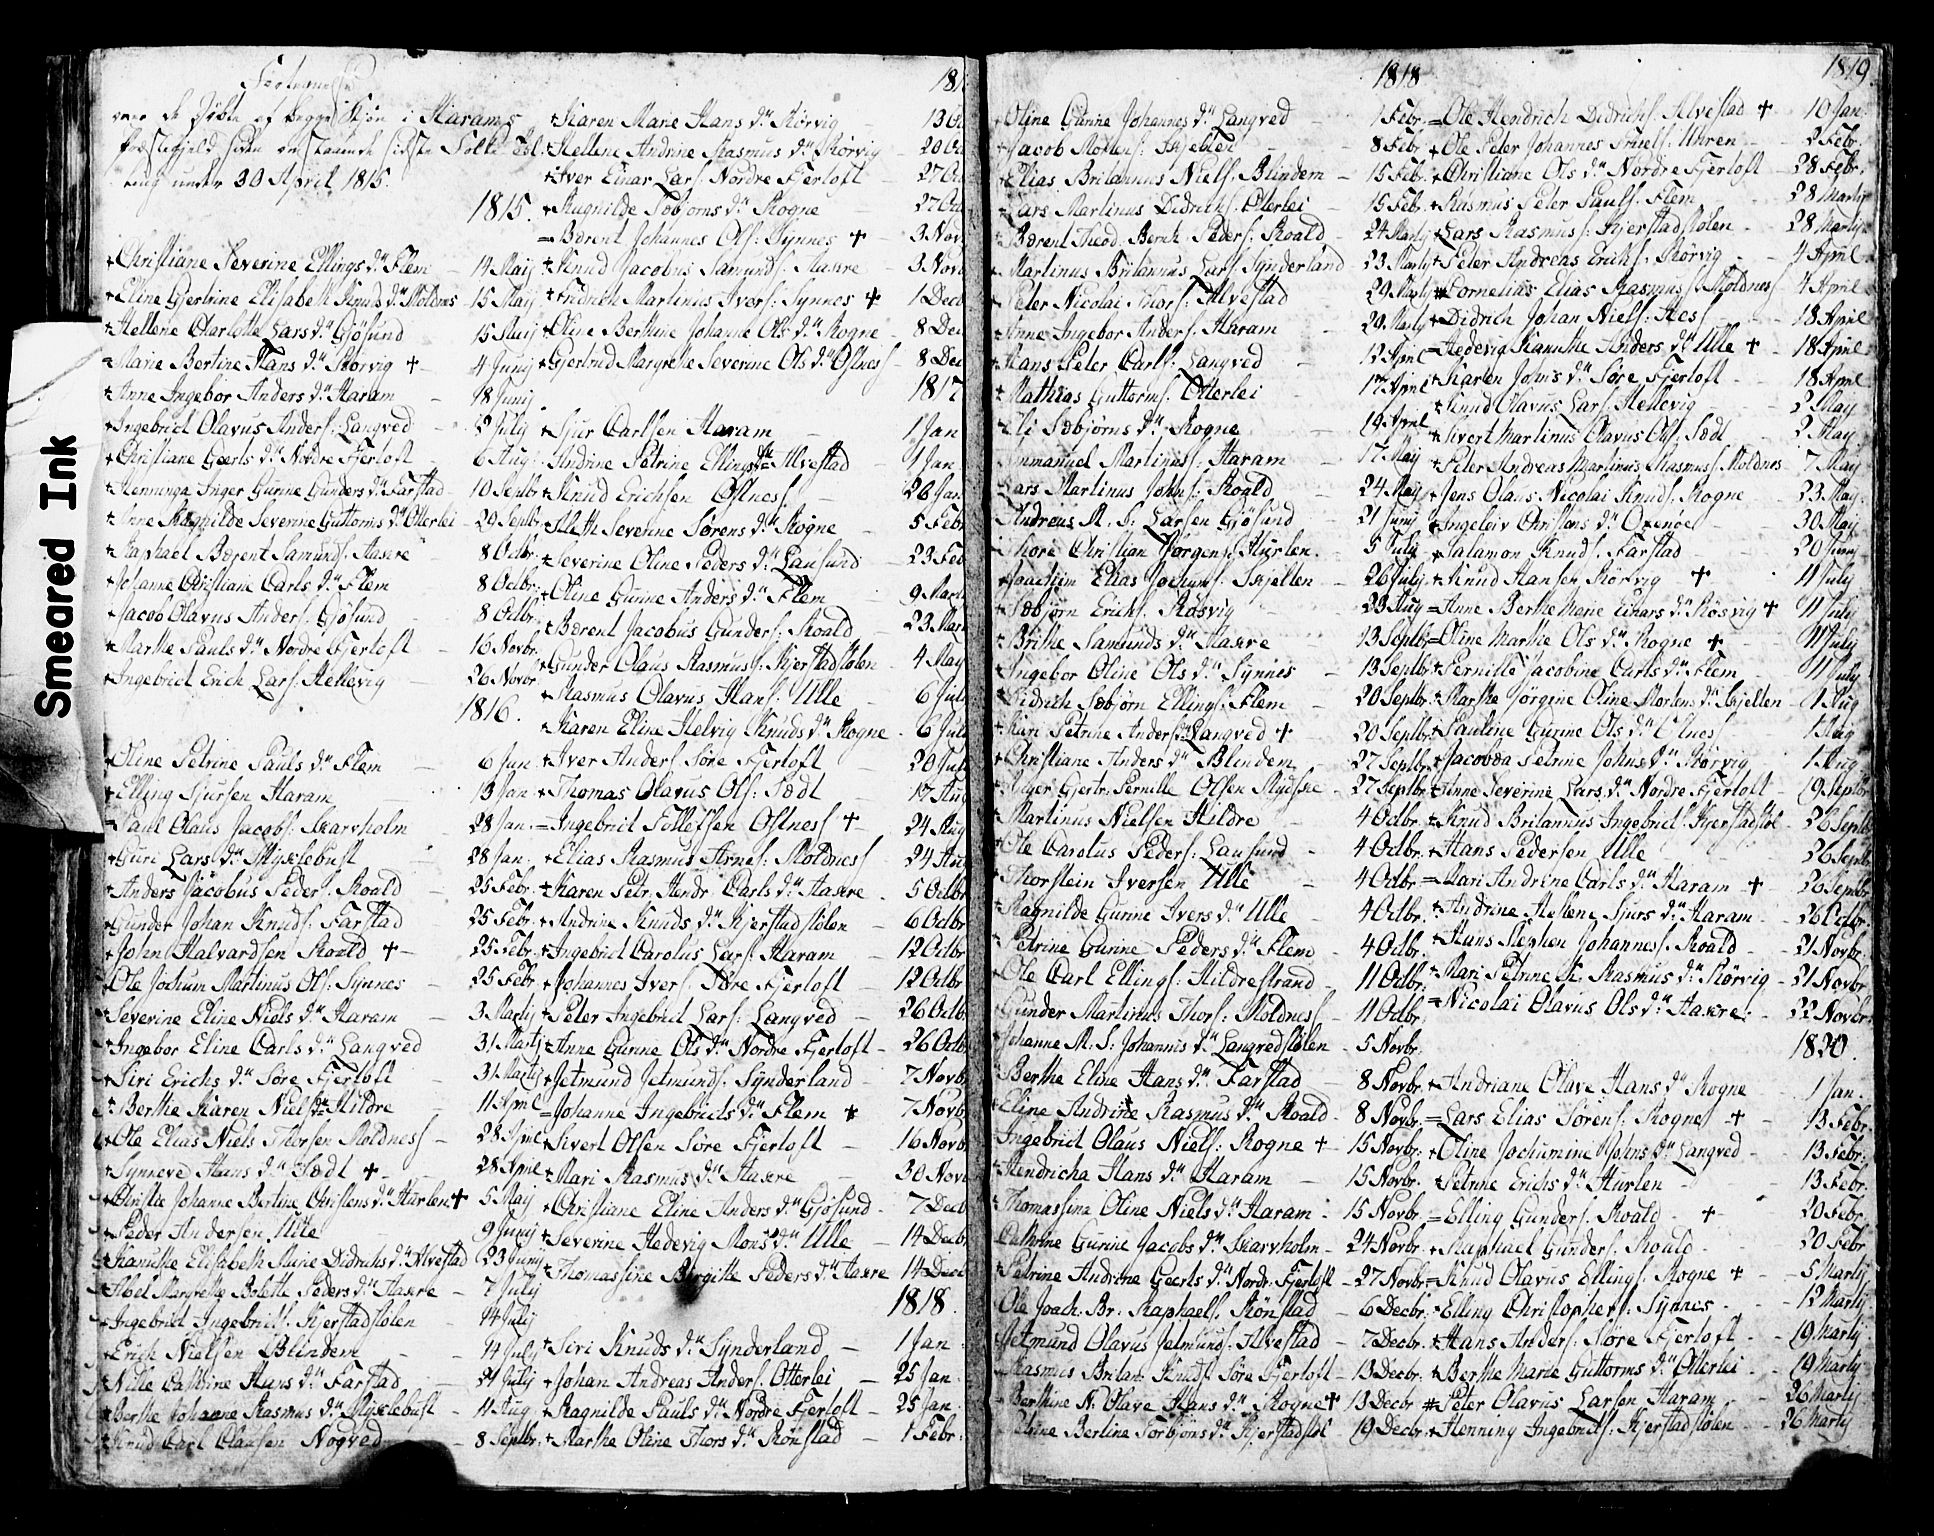 Smeared Ink
over de døbte af begge Kjøn i Harams
Præstegield siden
under 30 April 1815.
1815.
Christiane Severine Ellings dr Flem 14 Maij
Eline Gjertrine Elisabeth Knuds dr Moldnes 15 Maij
Hellene Charlotte Lars dr Gjøsund 15 Maij
Marie Bertine Hans dr Rørvig + 4 Junij
Anne Ingebor Anders dr Haram 18 Junij
Ingebrict Olavus Anders: Langved 2 Julij
Christiane Geerts dr Nordre Fjertoft 6 Aug:
Henninga Inger Gurine Gunders dr Farstad 10 Septbr
Anne Ragnilde Severine Guttorms dr Otterlei 29 Septbr
Raphael Bærent Samunds: Aakre 8 Octbr:
Johanne Christiane Carls dr Flem 8 Octbr:
Jacob Olavus Anders: Gjøsund 8 Octbr.
Marthe Pauls dr Nordre Fjertoft 16 Novbr.
Ingebrict Erich Lars: Hellevig 26 Novbr.
1816.
Oline Petrine Pauls dr Flem 6 Jan.
Elling Sjursen Haram 13 Jan
Paul Olaus Jacobs: Skarvholm 28 Jan.
Guri Lars dr Myklebust 28 Jan.
Anders Jacobus Peder: Roald 25 Febr.
Gunder Johan Knuds: Farstad 25 Febr.
John Halvardsen Roald + 25 Febr.
Ole Jochum Martinus Ols: Synnes 25 Febr
Severine Eline Niels dr Haram 3 Martij
Ingebor Eline Carls dr Langved 31 Martij
Siri Erichs dr Søre Fjertoft 31 Martij
Berthe Karen Niels dr Hildre 11 April
Ole Elias Niels Thorsen Moldness 28 April
Synneve Hans dr Sædt + 28 April
Christie Johanne Bertine Christens dr Hurlen + 5 Maij
Peder Andersen Ulle 9 Junij
Kanutte Elisabeth Marie Didrichs dr Alvestad 23 Junij
Abel Margrethe Bolette Peders dr Aakre 7 Julij
Ingebrict Ingebricts: Kjerstadstølen 14 Julij
Erich Nielsen Blindem 14 Julij
Nille Cathrine Hans dr Farstad 21 Julij
Berthe Johanne Rasmus dr Myklebust 11 Aug
Knud Carl Clausen Nogved 8 Septbr.
Karen Marie Hans dr Rørvig
Hellene Andrine Rasmus dr Rørvig
Iver Einar Lars: Nordre Fjertoft
Rugnilde Sæbjorns dr Rogne
Bærent Johannes Ols: Synnes +
Knud Jacobus Samunds: Aakre
Endrich Martinus Ivers: Synnes + 1 Dec
Oline Berthine Johanne Ols dr Rogne 8 Dec
Gjertrud Margrethe Severine Ols dr Østness 8 Dec
1817
Sjur Carlsen Haram 1 Jan
Andrine Petrine Ellings dr Alvestad 1 Jan
Knud Erichsen Østness 26 Jan
Aleth Severine Sørens dr Rogne 5 Febr
Severine Oline Peders dr Lausund 23 Feb
Oline Gurine Anders dr Flem 9 Mart
Bærent Jacobus Gunders: Roald 23 Mar
Gunder Olaus Rasmus: Kjerstadstølen 4 May
Rasmus Olavus Hans: Ulle 6 Jul
Karen Eline Helvig Knuds dr Rogne 6 Jul
Iver Anders: Søre Fjertoft 20 Jul
Thomas Olavus Ols: Sædt 17 Au
Ingebrict Tollefsen Østness + 24 Aug
Elias Rasmus Arnes: Moldness 24 Au
Karen Petr. Hendr. Carls dr Aakre 5 Octbr
Andrine Knuds dr Kjerstadstølen 6 Octbr
Ingebrict Carolus Lars: Haram 12 Octbr
Johannes Ivers: Søre Fjertoft 12 Octbr
Peter Ingebrict Lars: Langved 26 Octb
Anne Gurine Ols dr Nordre Fjertoft 26 Octb
Jetmund Jetmunds: Synderland 7 Novb
Johanne Ingebricts dr Flem + 7 Novb
Sivert Olsen Søre Fjertoft 16 Novb
Mari Rasmus dr Aakre 30 Nov
Christiane Eline Anders dr Gjøsund 7 Decb
Severine Hedevig Mons dr Ulle 14 Decb
Thomassine Birgitte Peders dr Aakre 14 Dec
1818.
Siri Knuds dr Synderland 1 Jan
Johan Andreas Anders: Otterlei 25 Jan
Ragnilde Pauls dr Nordre Fjertoft 25 Jan
Marthe Oline Thors dr Rønstad 1 Febr.
1818
Oline Gunne Johannes dr Langved 1 Febr.
Jacob Mortens: Skjelten 8 Febr
Elias Britannus Niels: Blindem 15 Feb.
Lars Martinus Didrichs: Otterlei 15 Feb.
Bærent Theod. Bernt Peders: Roald 24 Martij
Martinus Britannus Lars: Synderland 23 Martij
Peter Nicolai Thors: Alvestad 29 Martij
Anne Ingebor Anders: Haram 29 Martij
Hans Peter Carls: Langved 12 April
Mathias Guttorms: Otterlei 17 April
Eli Sæbjørns dr Rogne 19 April
Emmanuel Martinus: Haram 17 Maij
Lars Martinus Johns: Roald 24 Maij
Andreas M. S: Larsen Gjøsund 21 Junij
Thore Christian Jørgens: Hurlen. 5 Julij
Joachim Elias Jochums: Skjelten 26 Julij
Sæbjørn Erichs: Røsvig 23 Aug
Brithe Samunds dr Aakre 13 Septbr
Ingebor Oline Ols dr Synnes 13 Septbr
Didrich Sæbjørn Ellings: Flem 20 Septbr
Kari Petrine Anders dr Langved + 20 Septbr
Christiane Anders dr Blindem 27 Septbr
Inger Gjertr: Pernille Olsen 27 Septbr
Martinus Nielsen Hildre 4 Octbr.
Ole Carolus Peders: Lausund 4 Octbr.
Thorstein Iversen Ulle 4 Octbr.
Ragnilde Gurine Ivers dr Ulle 4 Octbr.
Petrine Gurine Peders dr Flem 4 Octbr.
Ole Carl Ellings: Hildrestrand 11 Octbr.
Gunder Martinus Thors: Moldness 11 Octbr.
Johanne M. S: Johannis dr Langvedstølen 5 Novbr.
Berthe Eline Hans dr Farstad 8 Novbr.
Eline Andrine Rasmus dr Roald 8 Novbr.
Ingebrict Olaus Niels: Rogne + 15 Novbr.
Hendricha Hans dr Haram 15 Novbr.
Thomassina Oline Niels dr Haram 15 Novbr.
Cathrine Gurine Jacobs dr Skarvholm 24 Novbr.
Petrine Andrine Geerts dr Nordr. Fjertoft 27 Novbr
Ole Joach. Br. Raphaels: Rønstad 6 Decbr.
Jetmund Olavus Jetmunds: Alvestad 7 Decbr.
Rasmus Britan: Knuds: Søre Fjertoft 13 Decbr.
Berthine N. Olave Hans dr Rogne + 13 Decbr
Petrine Bertine Torbjørns dr Kjerstadstøl 19 Decbr.
1819
Ole Hendrich Didrichs: Alvestad + 10 Jan.
Ole Peter Johannes Uhren 2 Febr.
Christiane Ols dr Nordre Fjertoft 28 Febr.
Rasmus Peter Pauls: Flem 28 Martij
Lars Rasmus: Kjerstadstølen 28 Martij
Peter Andreas Erichs: Rørvig 4 April
Cornelius Elias Rasmus: Moldness 4 April
Didrich Johan Niels: Hess 18 April
Hedevig Kanutthe Anders dr Ulle + 18 April
Karen Johns dr Søre Fjertoft 18 April
Knud Olavus Lars: Hellevig 2 May
Sivert Martinus Olavus Ols: Sædt 2 May
Peter Andreas Martinus Rasmus: Moldnes 7 May
Jens Olaus Nicolai Knuds: Rogne 23 May
Ingeleiv Christens dr Oxenøe 30 May
Salamon Knuds: Farstad 20 Junij
Knud Hansen Rørvig + 11 July
Anne Berthe Marie Einars dr Røsvig + 11 July
Oline Marthe Ols dr Rogne + 11 July
Pernille Jacobine Carls dr Flem 11 July
Marthe Jørgine Oline Mortens dr Skjelten 1 Aug
Pauline Gurine Ols dr Østness 1 Aug
Jacobæa Petrine Johns dr Rørvig 1 Aug
Anne Severine Lars dr Nordre Fjertoft 19 Septbr
Knud Britannus Ingebrict: Kjerstadstøl 26 Septb
Hans Pedersen Ulle 26 Septbr
Mari Andrine Carls dr Haram + 26 Septbr
Andrine Hellene Sjurs dr Haram 26 Octbr.
Hans Stephen Johannes: Roald 21 Novbr
Mari Petrine K. Rasmus dr Rørvig 21 Novbr
Nicolai Olavus Ols dr Aakre. 22 Novbr.
1820.
Andriane Olave Hans dr Rogne 1 Jan.
Lars Elias Sørens: Rogne + 13 Febr.
Oline Jochumine Johns dr Langved 13 Febr:
Petrine Erichs dr Hurlen 13 Febr.
Elling Gunders: Roald + 20 Febr.
Raphael Gunders: Roald 20 Febr
Knud Olavus Ellings: Rogne + 5 Martij
Elling Christophers: Synnes 12 Martij
Hans Anders: Søre Fjertoft 19 Martij
Berthe Marie Guttorms dr Otterlei 19 Martij
Peter Olavus Larsen Haram 26 Martij
Henning Ingebricts: Kjerstadstølen 26 Martij